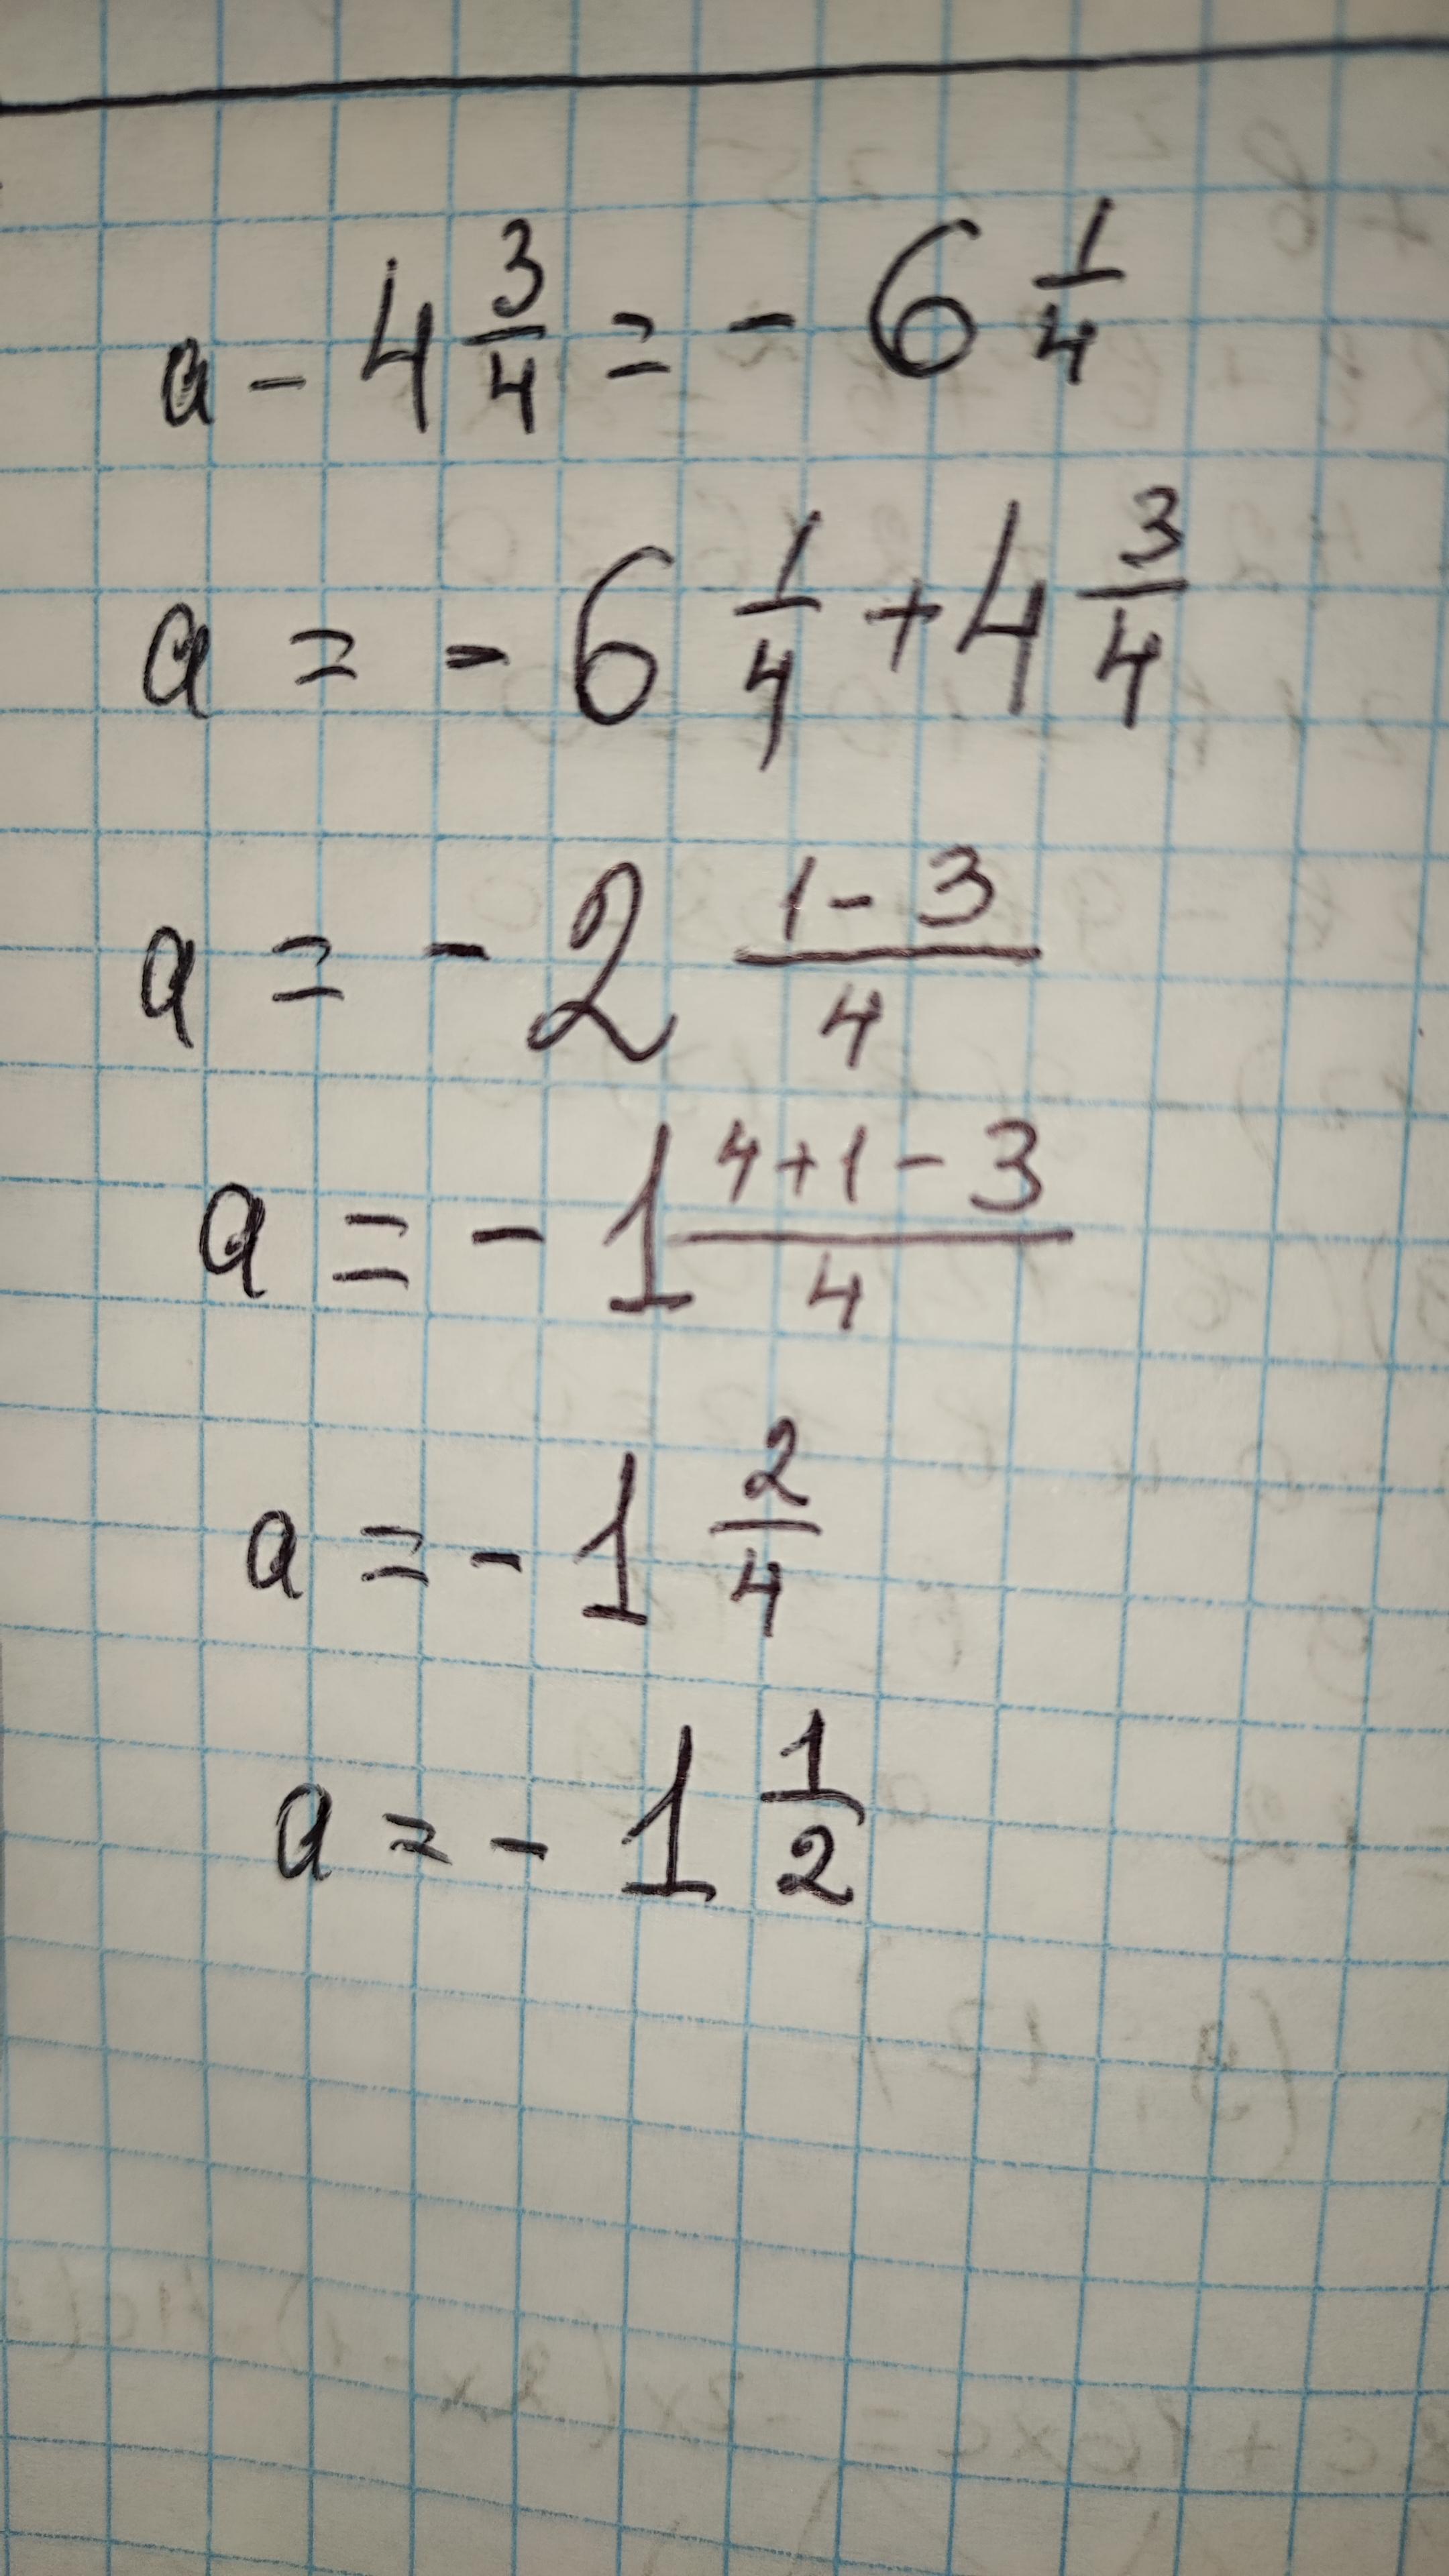 a - 4 3/4 = - 6 1/4
a = - 6 1/4 + 4 3/4
a = - 2 (1 - 3)/4
a = - 1 (4 + 1 - 3)/4
a = - 1 2/4
a = - 1 1/2